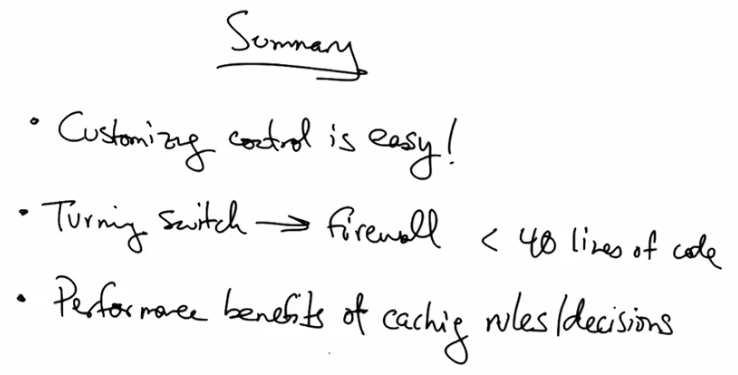 Summary
• Customizing control is easy!
• Turning switch → firewall < 40 lines of code
• Performance benefits of caching rules/decisions